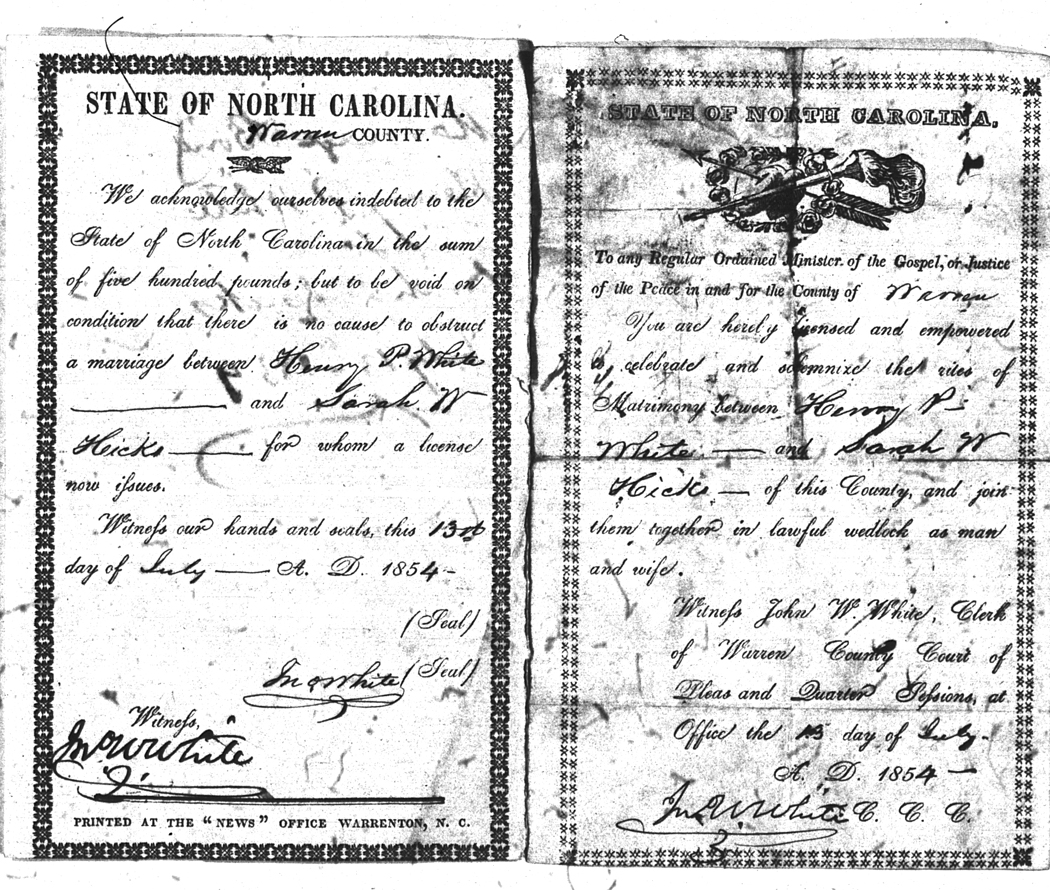 STATE OF NORTH CAROLINA.
Warren COUNTY.
We acknowledge ourselves indebted to the
State of North Carolina in the sum
of five hundred pounds; but to be void on
condition that there is no cause to obstruct
a marriage between Henry P. White
and Sarah W
Hicks for whom a license
now issues.
Witness our hands and seals, this 13th
day of July A. D. 1854
(Seal)
Jno White (Seal)
Witness,
Jno W White
PRINTED AT THE "NEWS" OFFICE WARRENTON, N. C.
STATE OF NORTH CAROLINA.
To any Regular Ordained Minister of the Gospel, or Justice
of the Peace in and for the County of Warren
You are hereby licensed and empowered
to celebrate and solemnize the rites of
Matrimony between Henry P
White and Sarah W
Hicks of this County, and join
them together in lawful wedlock as man
and wife.
Witness John W. White, Clerk
of Warren County Court of
Pleas and Quarter Sessions, at
Office the 13 day of July
A. D. 1854
Jno W White C. C. C.